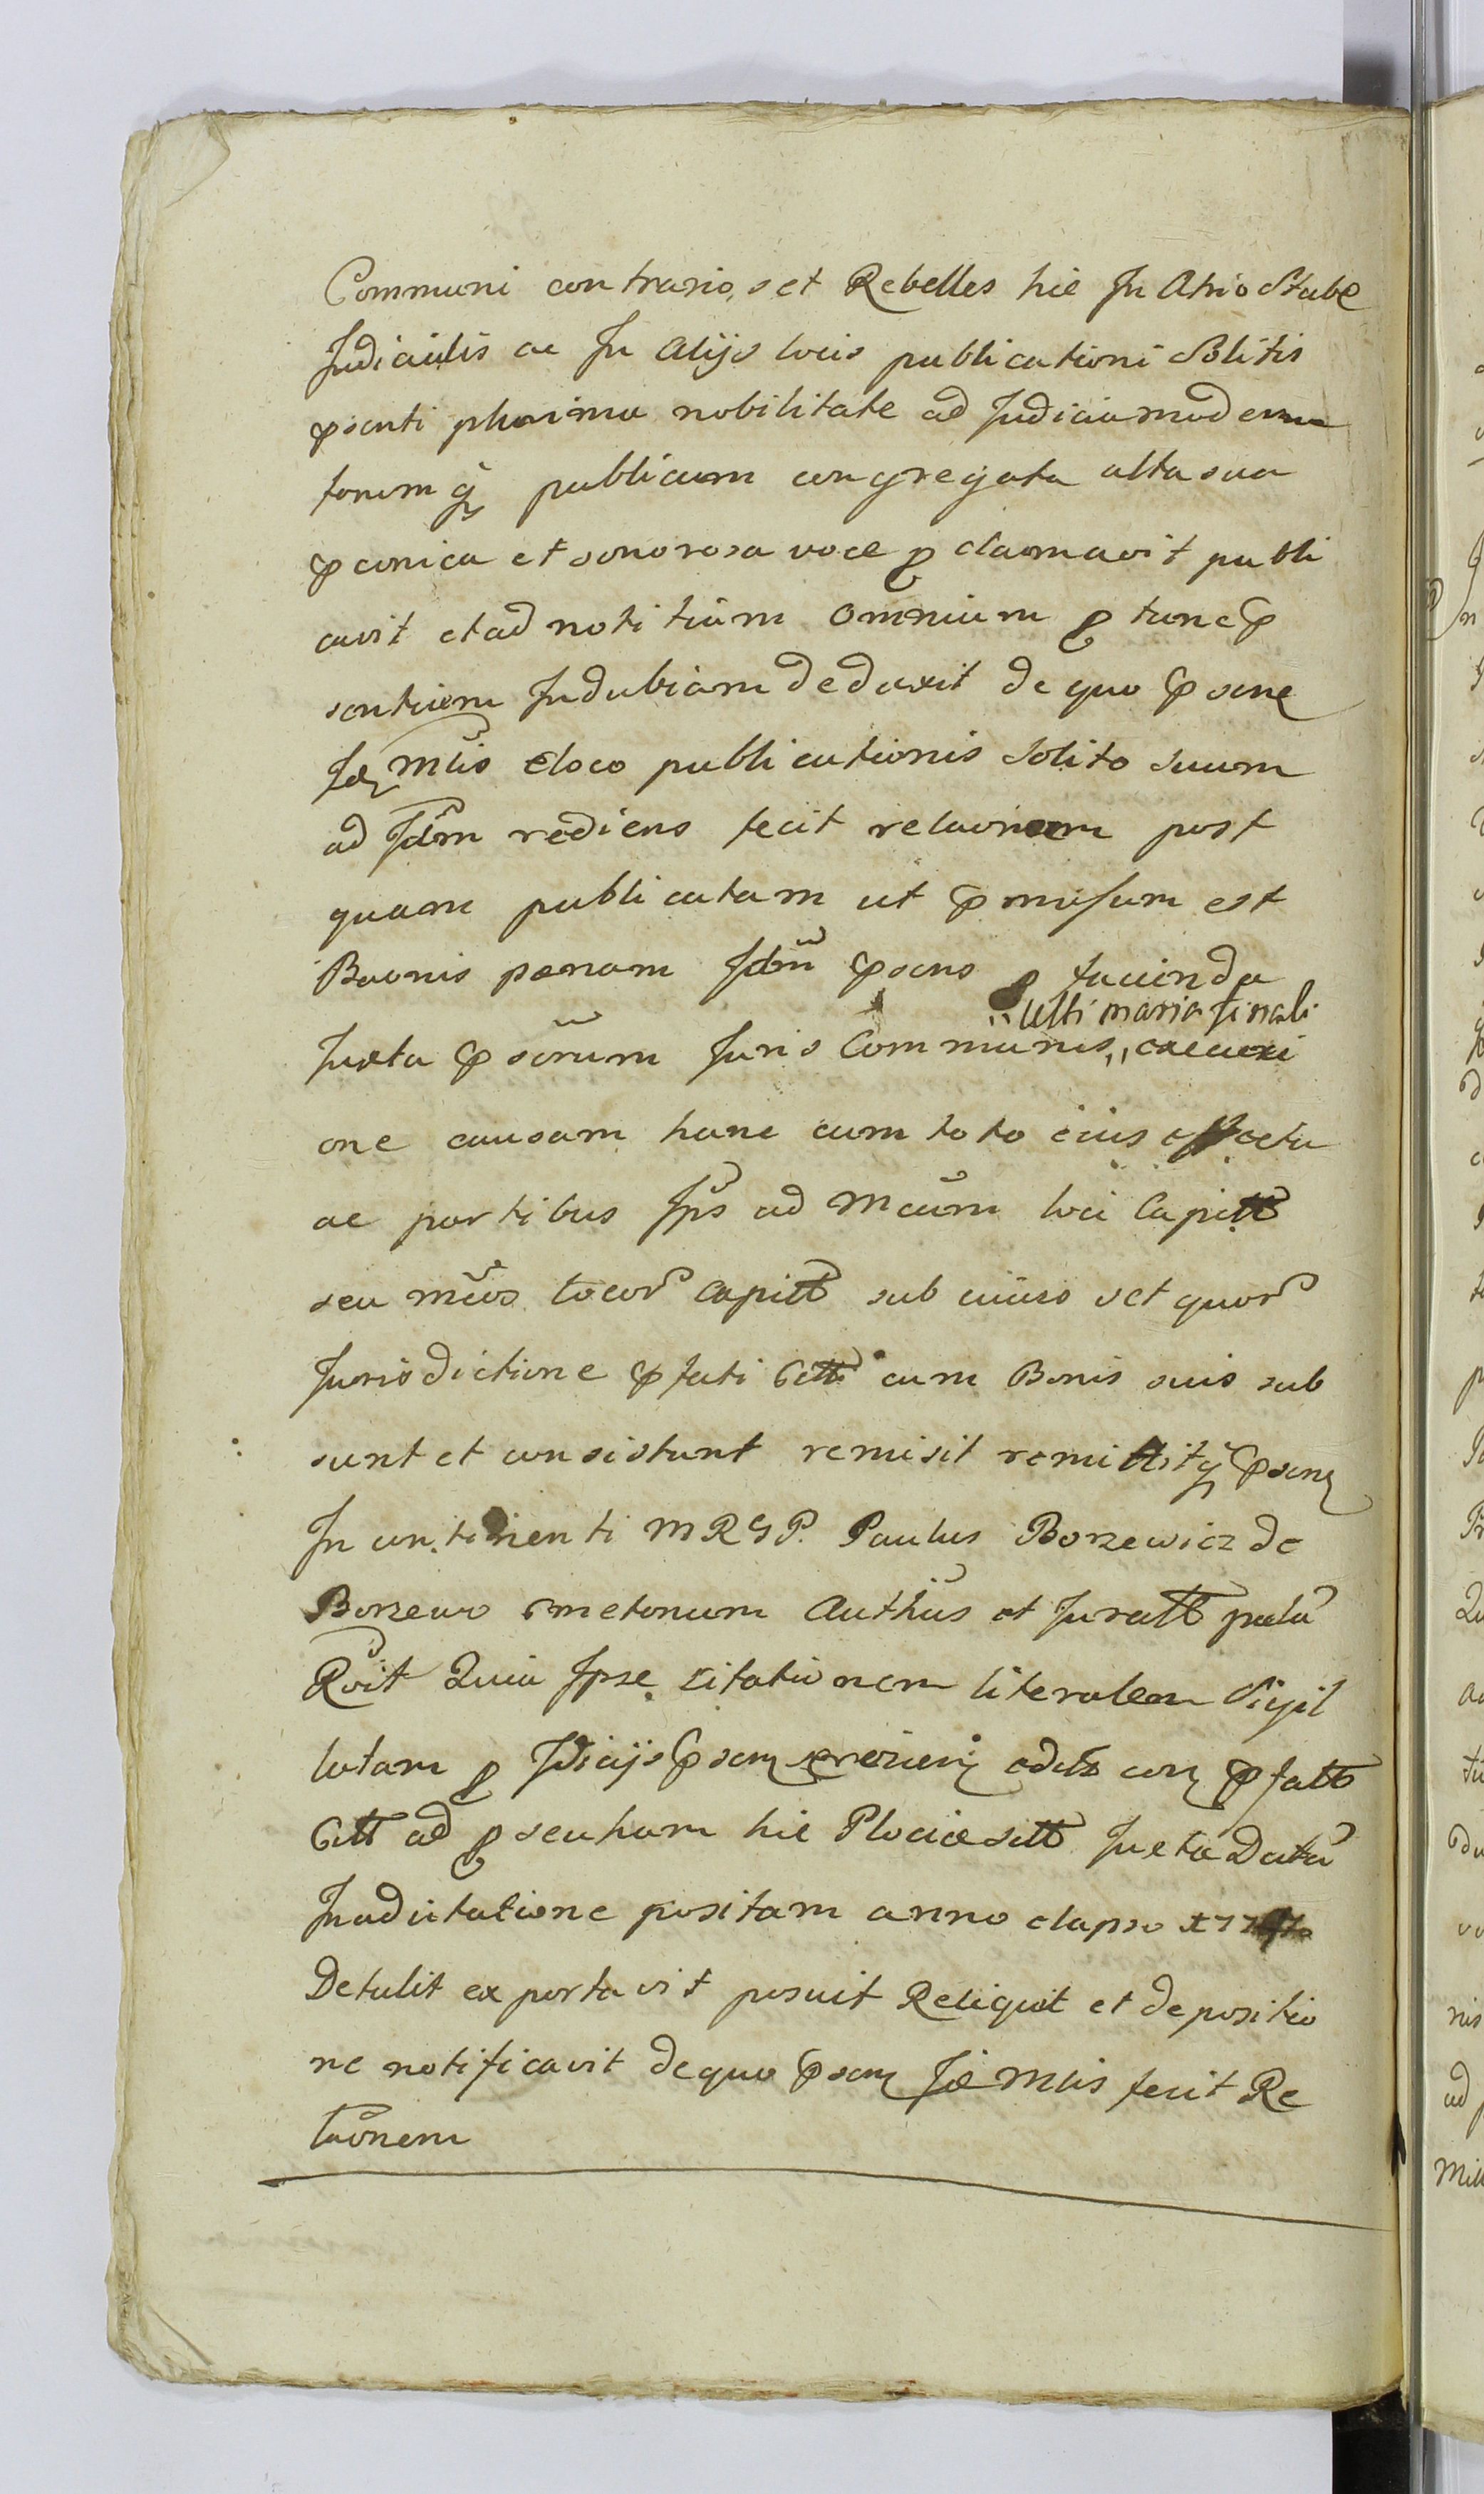 Communi contrarios et Rebelles hic In Atrio Stube
Judicialis ac In Alijs locis publicationi Solitis
psenti plurima nobilitate ad Judicia moderna
forumq̃ publicum congregata alta sua
pconica et sonorosa voce p clamavit publi
cavit et ad notitiam omnium p tunc p
sentium Indubiam deduxit de quo psens
Idẽ Mlis eloco publicationis Solito suum
ad Jdm rediens fecit relaonem post
quam publicatam ut pmissum est
Baonis pænam Jdm psens p facienda
ultimaria finali
Juxta psorum Juris Communis,, execuri
one causam hanc cum toto eius effectu
ac partibus Ips ad Mcum loci Capitt
seu mcos locor capitt sub cuius vet quor
Jurisdictione pfati Citti cum Bonis suis sub
sunt et consistunt remisit remittitq̃ psens
In continenti M R G P. Paulus Borzewicz de
Borzewo Cmetonum Authus et Juratt palã
Roit Quia Ipse Citationem literalem Sigil
latam p Jdicijs psens edit con pfatt
Citt ad p sentiam hic Plociæ Juxta Datã
In adcitatione positam anno elapso
Detulit exportavit posuit Reliquit et depositio
ne notificavit de quo psens Idẽ Mlis fecit Re
laõnem